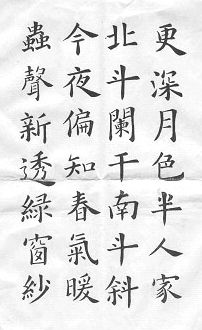 更深月色半人家
北斗闌干南斗斜
今夜偏知春氣暖
蟲聲新透綠窗紗